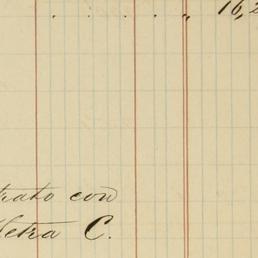 . . . . „ 16,2
trato con
letra C.